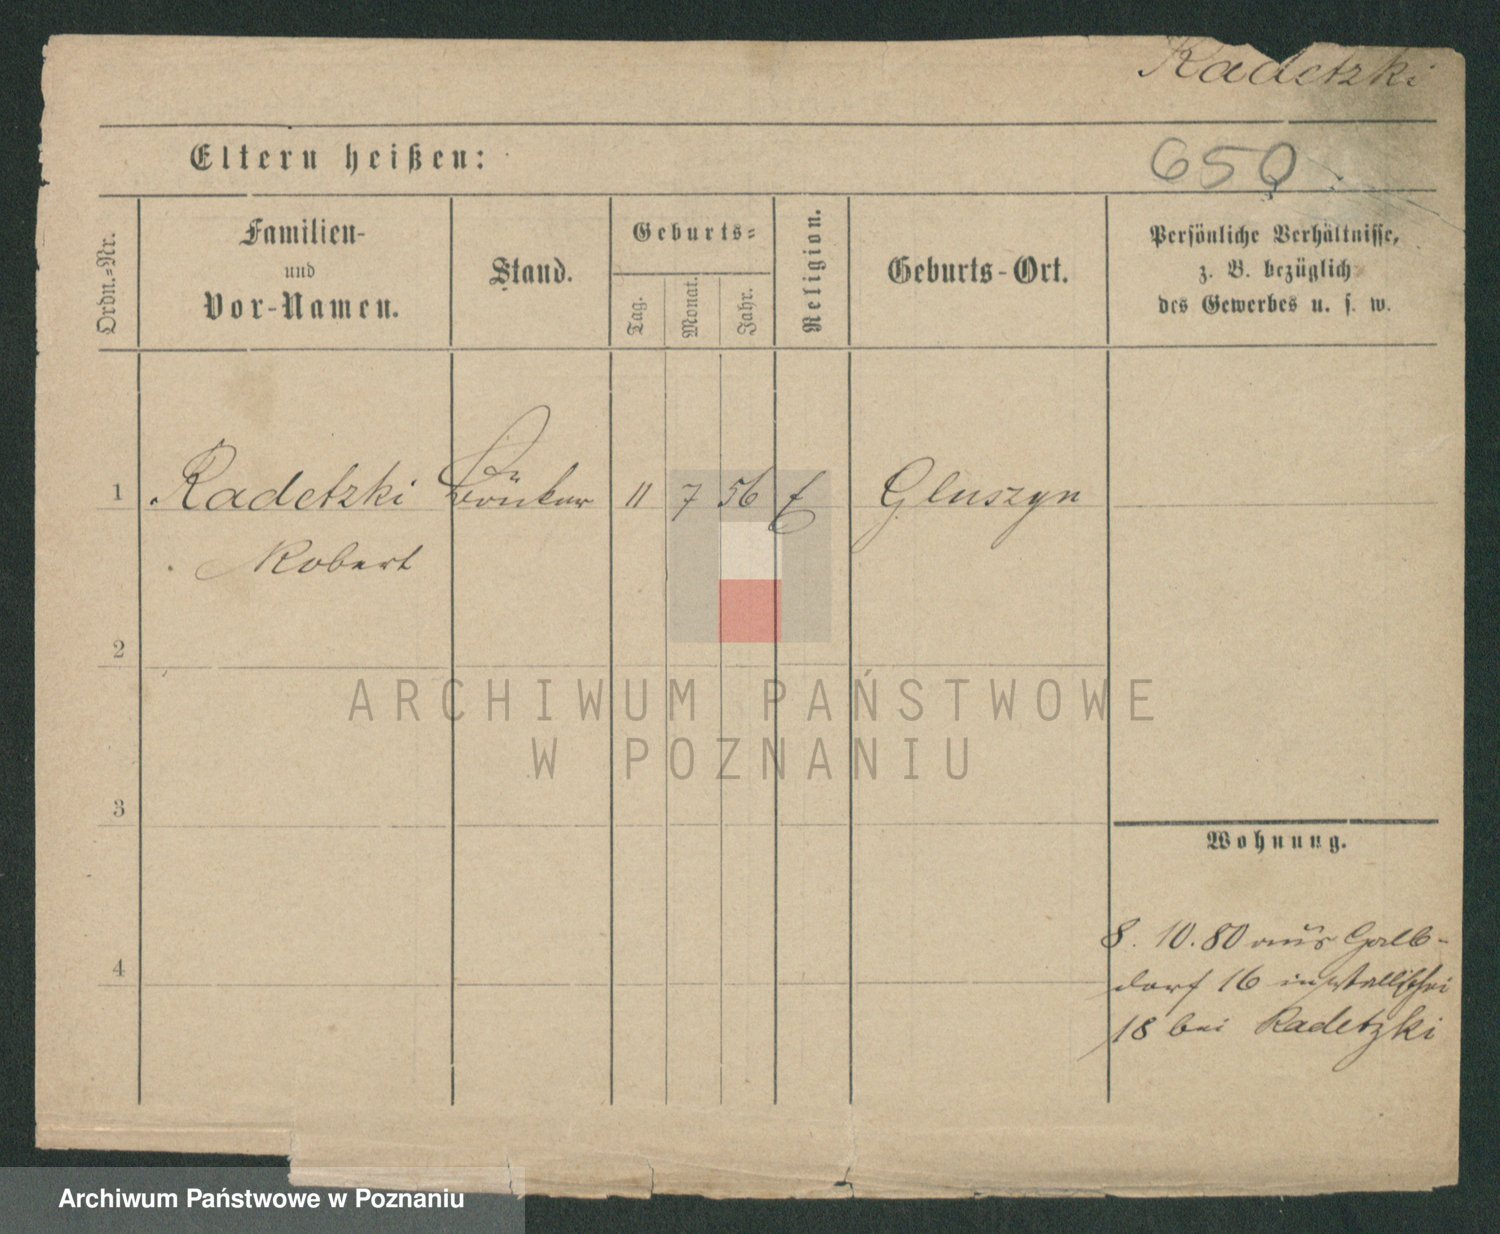 Radetzki
Eltern heißen:
650
Ordn.-Nr.
Familien-
und
Vor-Namen.
Stand.
Geburts-
Tag.
Monat.
Jahr.
Religion.
Geburts-Ort.
Persönliche Verhältnisse,
z. B. bezüglich
des Gewerbes u. s. w.
1 Radetzki 11 7 56 Gluszyn
Robert
2
3
4
Wohnung.
8. 10. 80 aus
dorf 16 in Wallischei
18 bei Radetzki
ARCHIWUM PAŃSTWOWE
W POZNANIU
Archiwum Państwowe w Poznaniu